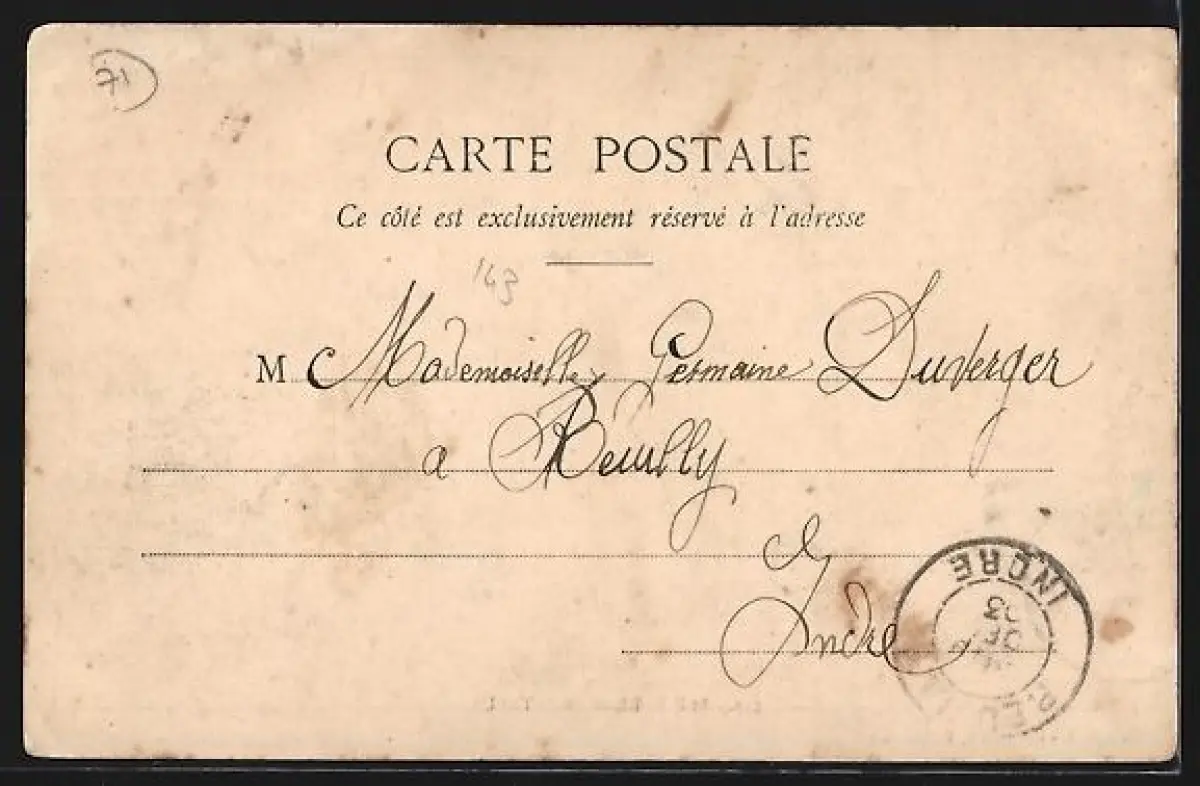 71
CARTE POSTALE
Ce côté est exclusivement réservé à l'adresse
143
M Mademoiselle Germaine Duverger
a Reuilly
Indre
INDRE
03